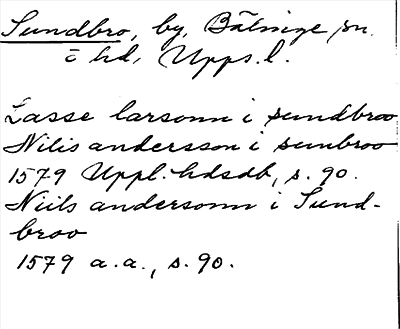 Sundbro, by, Bälinge sn.
i hd, Upps. l.
Lasse larsonn i sundbroo
Nilis andersson i sunbroo
1579 Uppl. hdsdb, s. 90.
Niils andersonn i Sund-
broo
1579 a.a., s. 90.